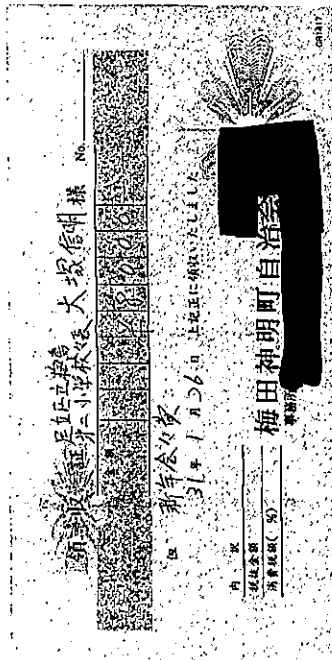 領収証
足立区立梅島
第二小学校長 大塚信明 様
No.
金額
8000
但 新年会々費
31年 1月 26日 上記正に領収いたしました
内訳
税抜金額
消費税額( %)
梅田神明町自治会
事務所